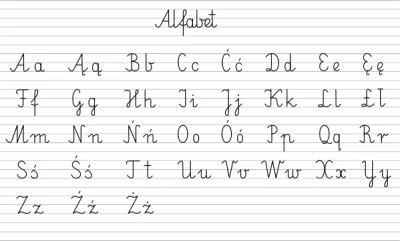 Alfabet
Aa Ąą Bb Cc Ćć Dd Ee Ęę
Ff Gg Hh Ii Jj Kk Ll Łł
Mm Nn Ńń Oo Óó Pp Qq Rr
Ss Śś Tt Uu Vv Ww Xx Yy
Zz Źź Żż